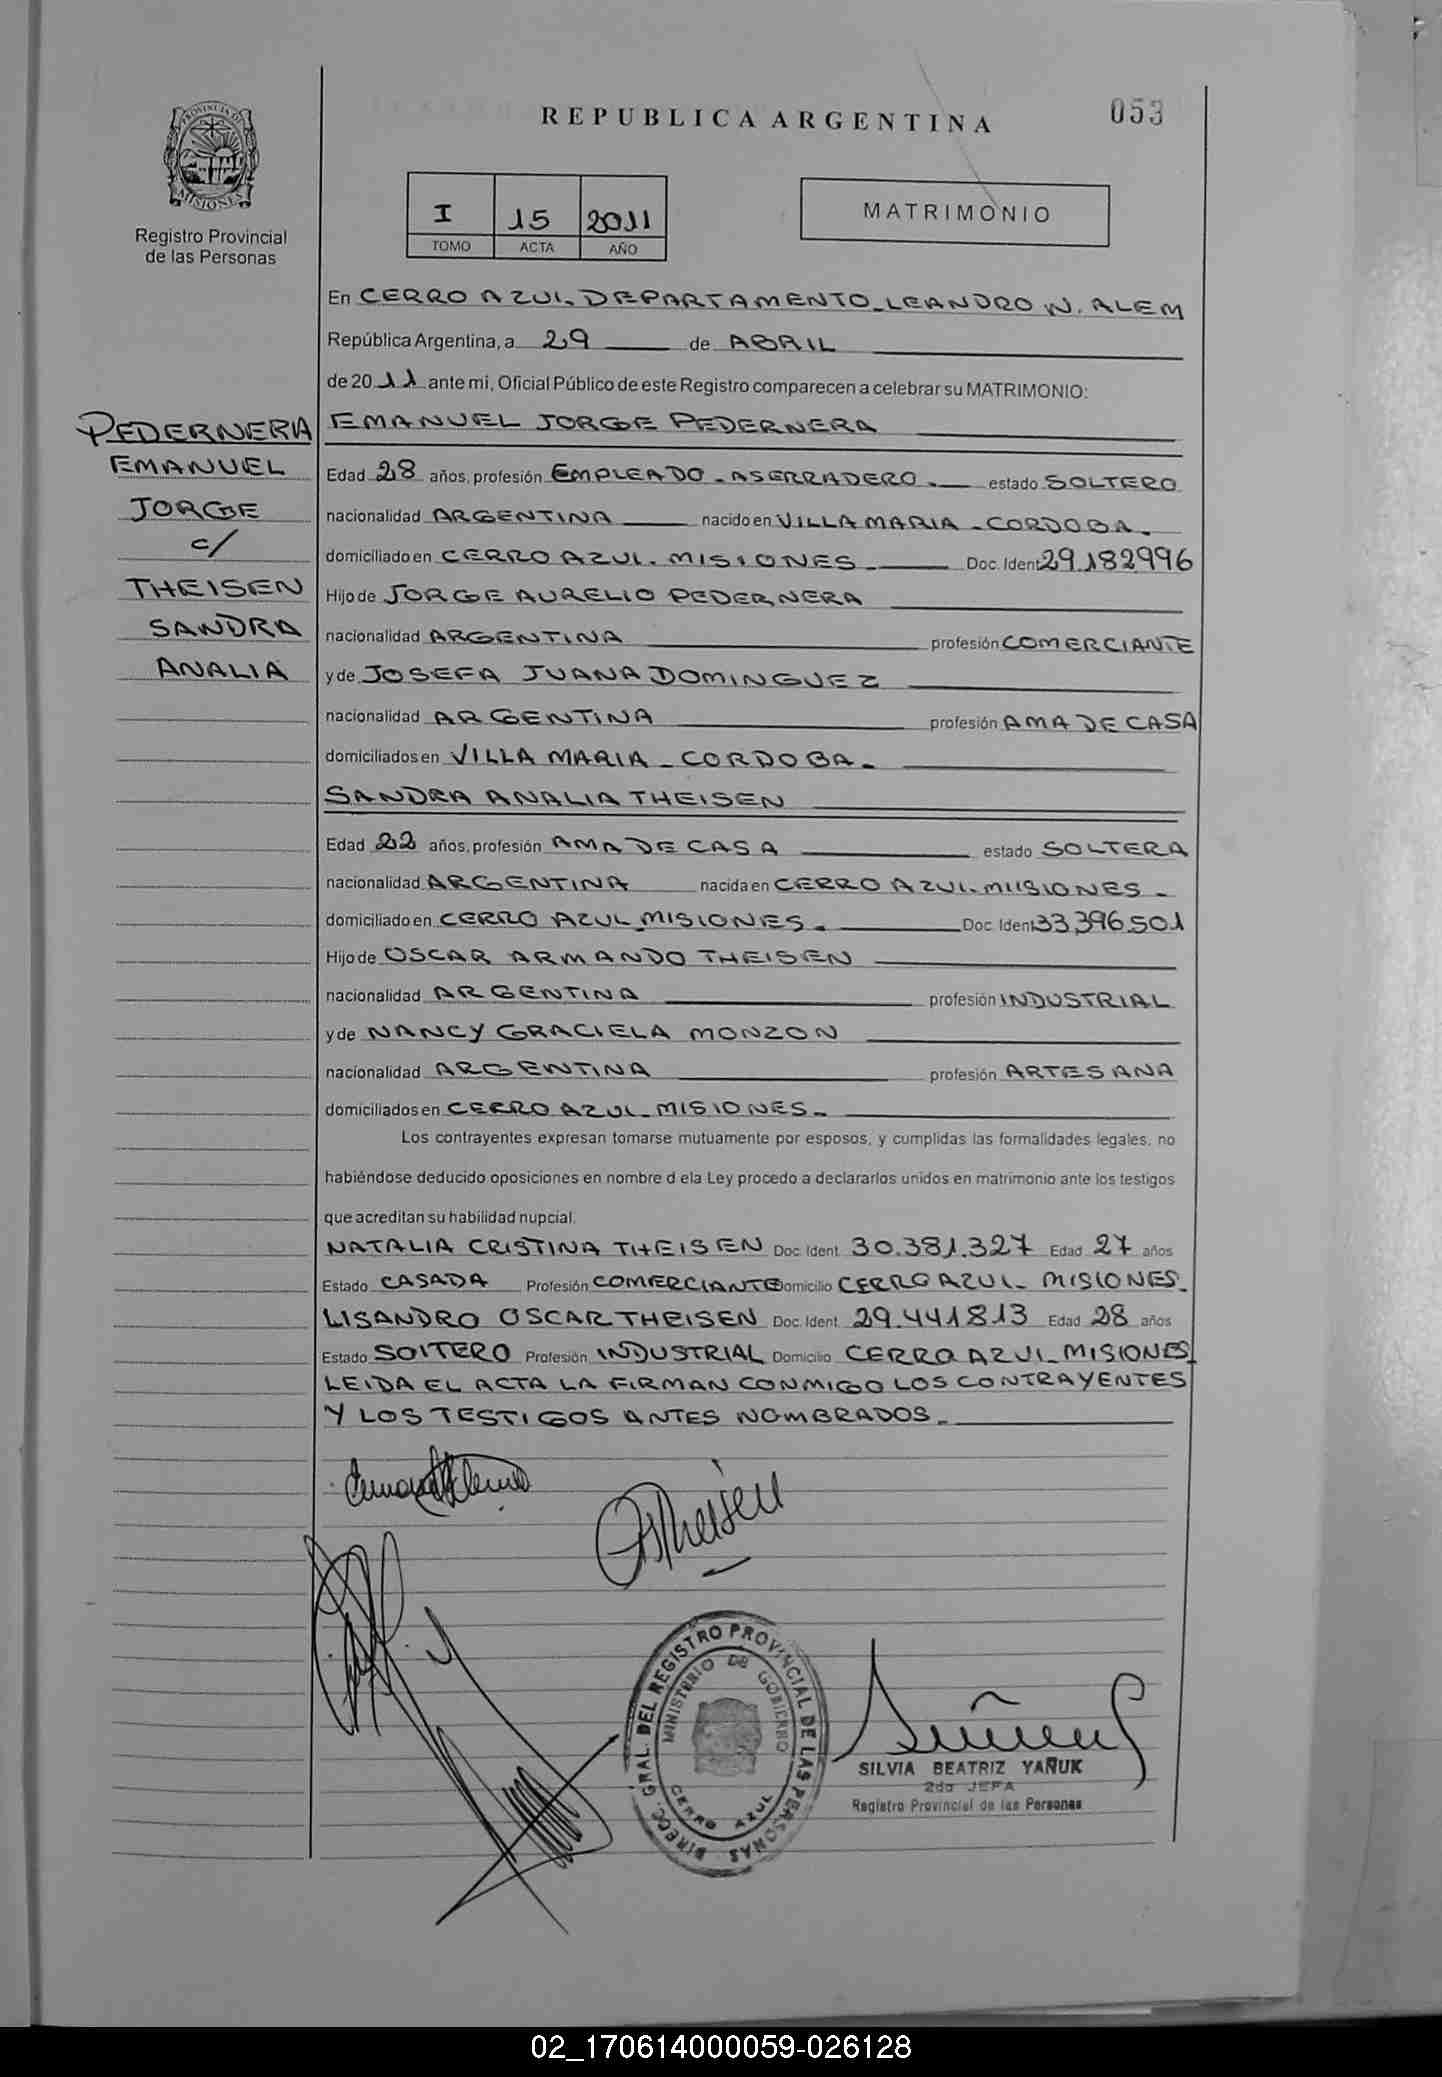 REPUBLICA ARGENTINA
053
PROVINCIA DE
MISIONES
Registro Provincial
de las Personas
I 15 2011
TOMO ACTA AÑO
MATRIMONIO
PEDERNERA
EMANUEL
JORGE
c/
THEISEN
SANDRA
ANALIA
En CERRO AZUL. DEPARTAMENTO_LEANDRO N. ALEM
República Argentina, a 29 de ABRIL
de 2011 ante mi, Oficial Público de este Registro comparecen a celebrar su MATRIMONIO:
EMANUEL JORGE PEDERNERA
Edad 28 años, profesión EMPLEADO - ASERRADERO. estado SOLTERO
nacionalidad ARGENTINA nacido en VILLA MARIA - CORDOBA.
domiciliado en CERRO AZUL. MISIONES. Doc. Ident 29.182996
Hijo de JORGE AURELIO PEDERNERA
nacionalidad ARGENTINA profesión COMERCIANTE
y de JOSEFA JUANA DOMINGUEZ
nacionalidad ARGENTINA profesión AMA DE CASA
domiciliados en VILLA MARIA - CORDOBA.
SANDRA ANALIA THEISEN
Edad 22 años, profesión AMA DE CASA estado SOLTERA
nacionalidad ARGENTINA nacida en CERRO AZUL. MISIONES -
domiciliado en CERRO AZUL_MISIONES. Doc. Ident 33,396,501
Hijo de OSCAR ARMANDO THEISEN
nacionalidad ARGENTINA profesión INDUSTRIAL
y de NANCY GRACIELA MONZON
nacionalidad ARGENTINA profesión ARTESANA
domiciliados en CERRO AZUL_MISIONES.
Los contrayentes expresan tomarse mutuamente por esposos, y cumplidas las formalidades legales, no
habiéndose deducido oposiciones en nombre d ela Ley procedo a declararlos unidos en matrimonio ante los testigos
que acreditan su habilidad nupcial.
NATALIA CRISTINA THEISEN Doc. Ident. 30.381.327 Edad 27 años
Estado CASADA Profesión COMERCIANTE Domicilio CERRO AZUL_ MISIONES.
LISANDRO OSCAR THEISEN Doc. Ident. 29.441813 Edad 28 años
Estado SOLTERO Profesión INDUSTRIAL Domicilio CERRO AZUL_MISIONES
LEIDA EL ACTA LA FIRMAN CONMIGO LOS CONTRAYENTES
Y LOS TESTIGOS ANTES NOMBRADOS.
Theisen
DIRECC. GRAL. DEL REGISTRO PROVINCIAL DE LAS PERSONAS
MINISTERIO DE GOBIERNO
CERRO AZUL
SILVIA BEATRIZ YAÑUK
2da JEFA
Registro Provincial de las Personas
02_170614000059-026128